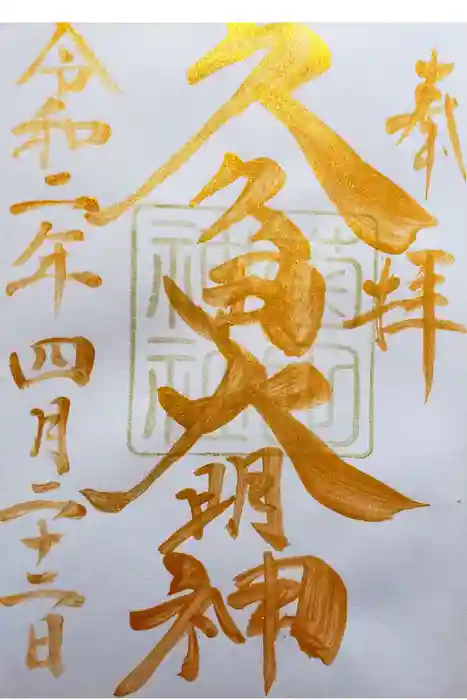 奉拝
久角大明神
令和二年四月二十二日
神社